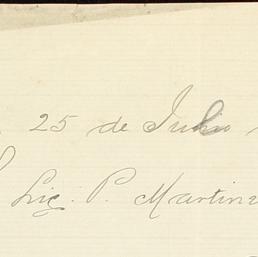 25 de Julio
Lic. P. Martine